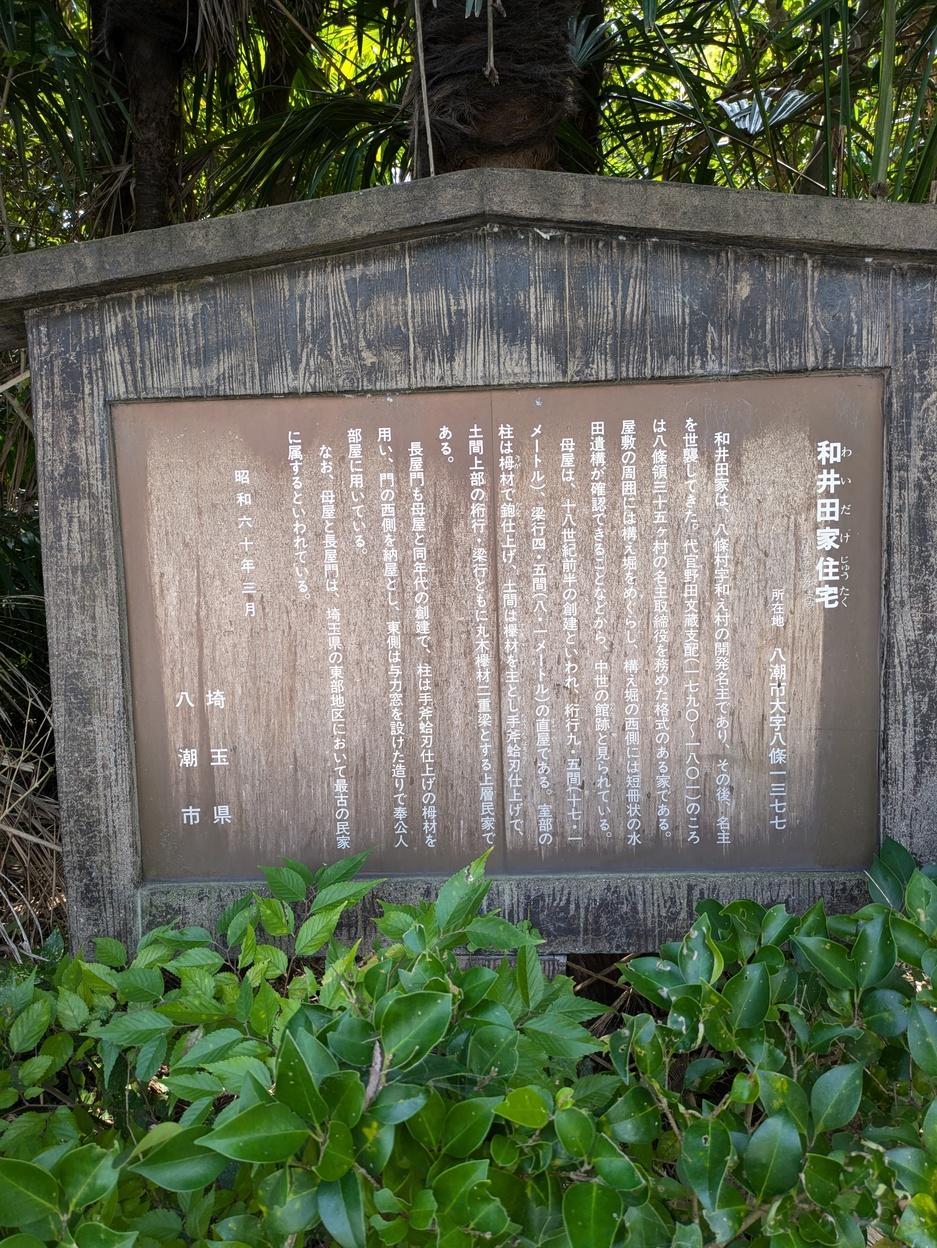 和井田家住宅
わいだけじゅうたく
所在地 八潮市大字八條一三七七
和井田家は、八條村字和え村の開発名主であり、その後、名主
を世襲してきた。代官野田文蔵支配(一七九〇〜一八〇一)のころ
は八條領三十五ヶ村の名主取締役を務めた格式のある家である。
屋敷の周囲には構え堀をめぐらし、構え堀の西側には短冊状の水
田遺構が確認できることなどから、中世の館跡と見られている。
母屋は、十八世紀前半の創建といわれ、桁行九・五間(十七・一
メートル)、梁行四・五間(八・一メートル)の直屋である。室部の
柱は栂材で鉋仕上げ、土間は欅材を主とし手斧蛤刃仕上げで、
土間上部の桁行・梁行ともに丸木欅材二重梁とする上層民家で
ある。
長屋門も母屋と同年代の創建で、柱は手斧蛤刃仕上げの栂材を
用い、門の西側を納屋とし、東側は与力窓を設けた造りで奉公人
部屋に用いている。
なお、母屋と長屋門は、埼玉県の東部地区において最古の民家
に属するといわれている。
昭和六十年三月
埼玉県
八潮市